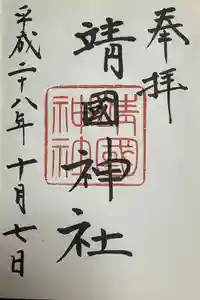 奉拝
靖國神社
靖國神社
平成二十八年十月七日